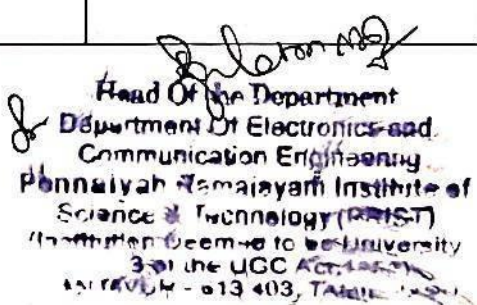 for
Head Of the Department
Department Of Electronics and
Communication Engineering
Ponnaiyah Ramajayam Institute of
Science & Technology (PRIST)
(Institution Deemed to be University
3 of the UGC Act
- 613 403,